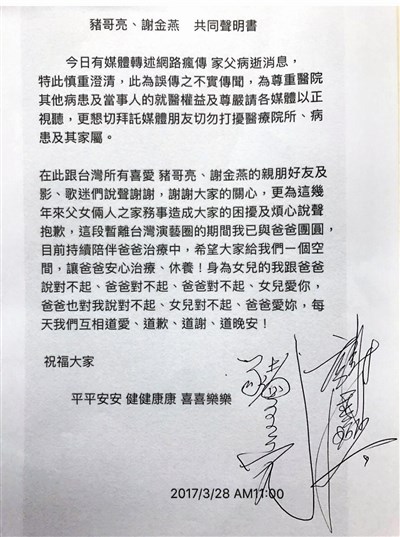 豬哥亮、謝金燕　共同聲明書
今日有媒體轉述網路瘋傳 家父病逝消息，
特此慎重澄清，此為誤傳之不實傳聞，為尊重醫院
其他病患及當事人的就醫權益及尊嚴請各媒體以正
視聽，更懇切拜託媒體朋友切勿打擾醫療院所、病
患及其家屬。
在此跟台灣所有喜愛 豬哥亮、謝金燕的親朋好友及
影、歌迷們說聲謝謝，謝謝大家的關心，更為這幾
年來父女倆人之家務事造成大家的困擾及煩心說聲
抱歉，這段暫離台灣演藝圈的期間我已與爸爸團圓，
目前持續陪伴爸爸治療中，希望大家給我們一個空
間，讓爸爸安心治療、休養！身為女兒的我跟爸爸
說對不起、爸爸對不起、爸爸對不起、女兒愛你，
爸爸也對我說對不起、女兒對不起、爸爸愛妳，每
天我們互相道愛、道歉、道謝、道晚安！
祝福大家
平平安安 健健康康 喜喜樂樂
豬哥亮
謝金燕
2017/3/28 AM11:00